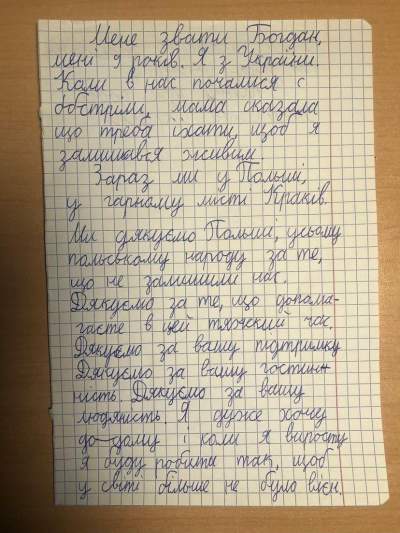 Мене звати Богдан,
мені 9 років. Я з України.
Коли в нас почалися с
обстріли, мама сказала
що треба їхати, щоб я
залишався живим.
Зараз ми у Польші,
у гарному місті Краків.
Ми дякуємо Польші, усьому
польському народу за те,
що не залишили нас.
Дякуємо за те, що допома-
гаєте в цей тяжский час.
Дякуємо за вашу підтримку
Дякуємо за вашу гостин-
ність. Дякуємо за вашу
людяність. Я дуже хочу
до-дому і коли я виросту
я буду робити так, щоб
у світі більше не було війн.